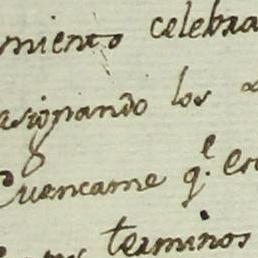 miento celebra
asionando los
Cuencame q.e en
terminos